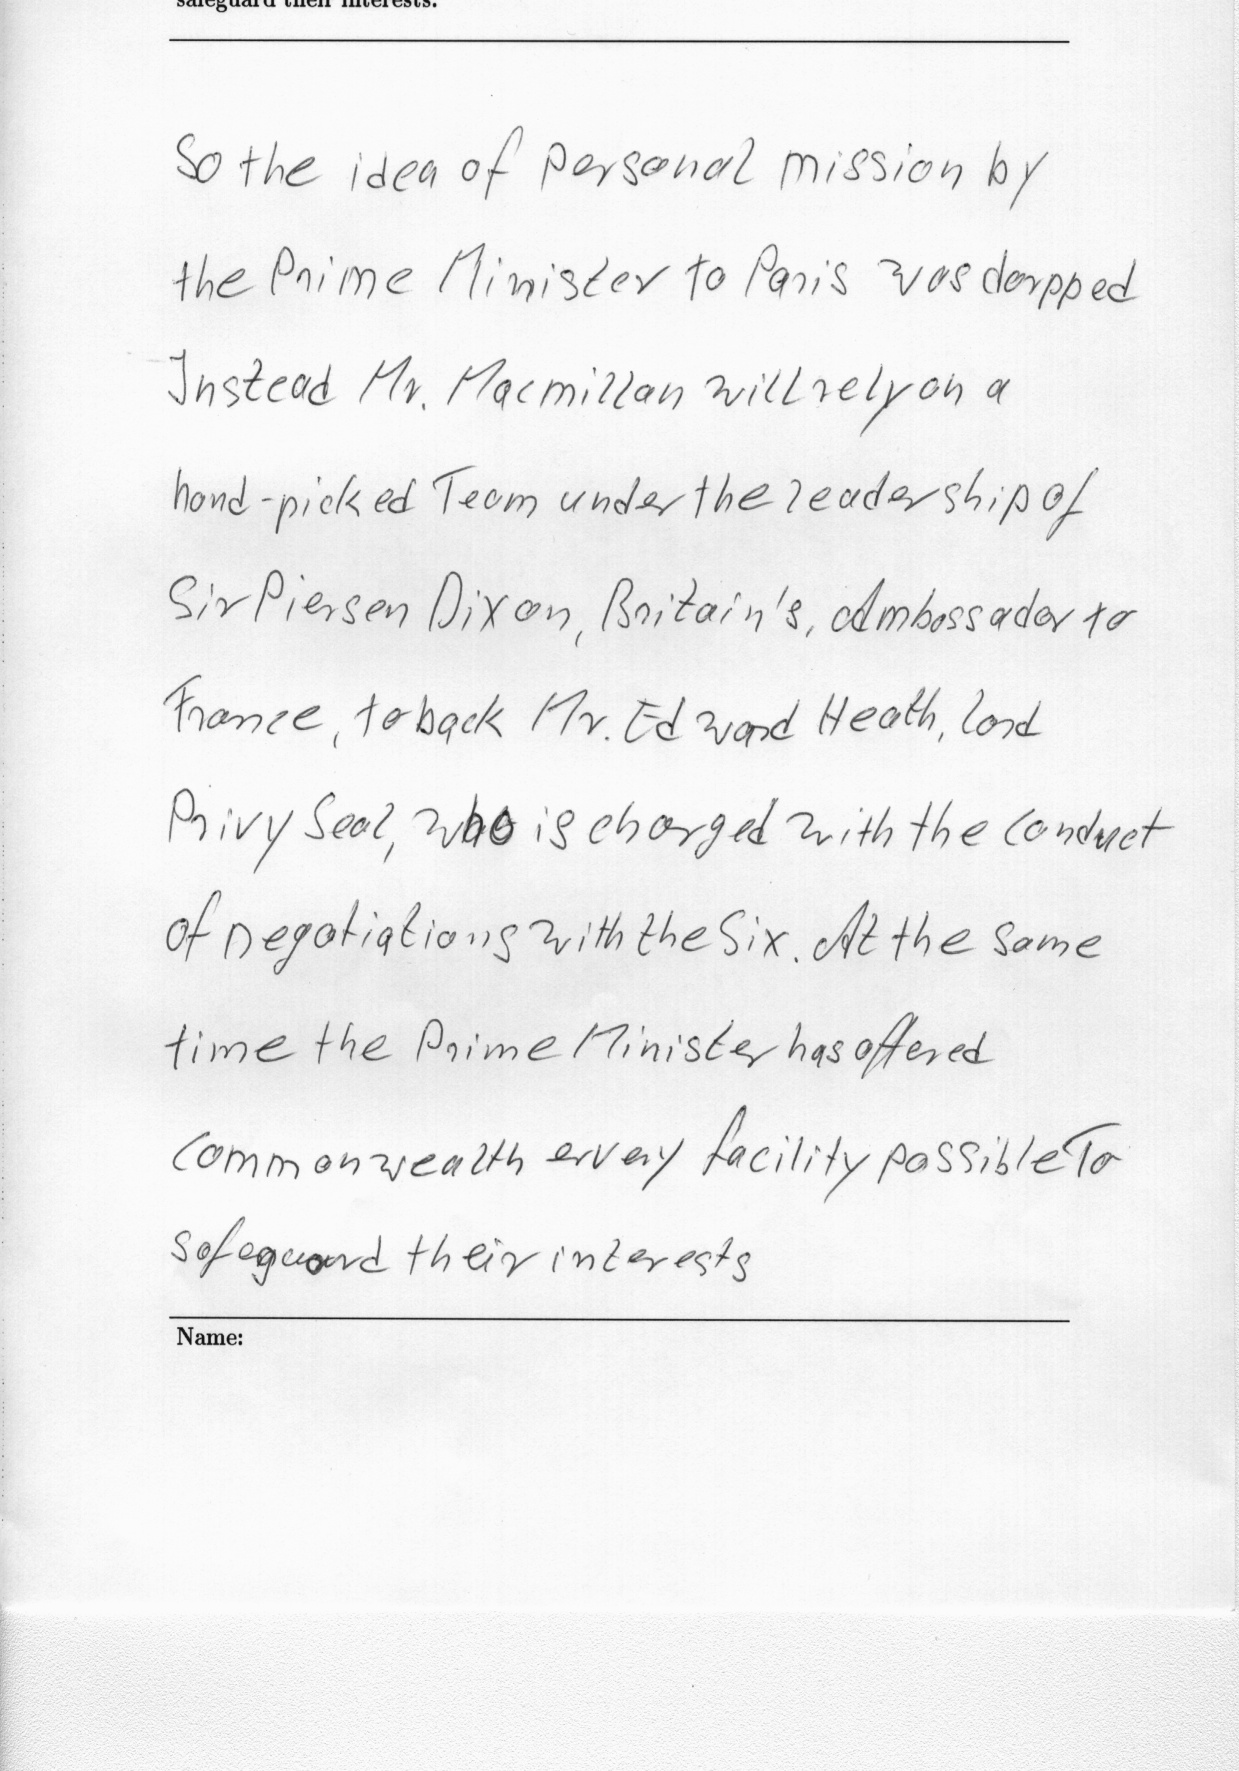 safeguard their interests.
So the idea of personal mission by
the Prime Minister to Paris was dorpped
Instead Mr. Macmillan will rely on a
hand-picked Team under the leadership of
Sir Piersen Dixon, Britain's, Ambassador to
France, to back Mr. Edward Heath, lord
Privy Seal, who is charged with the conduct
of negotiations with the Six. At the same
time the Prime Minister has offered
Commonwealth ervery facility possible To
safeguard their interests
Name: